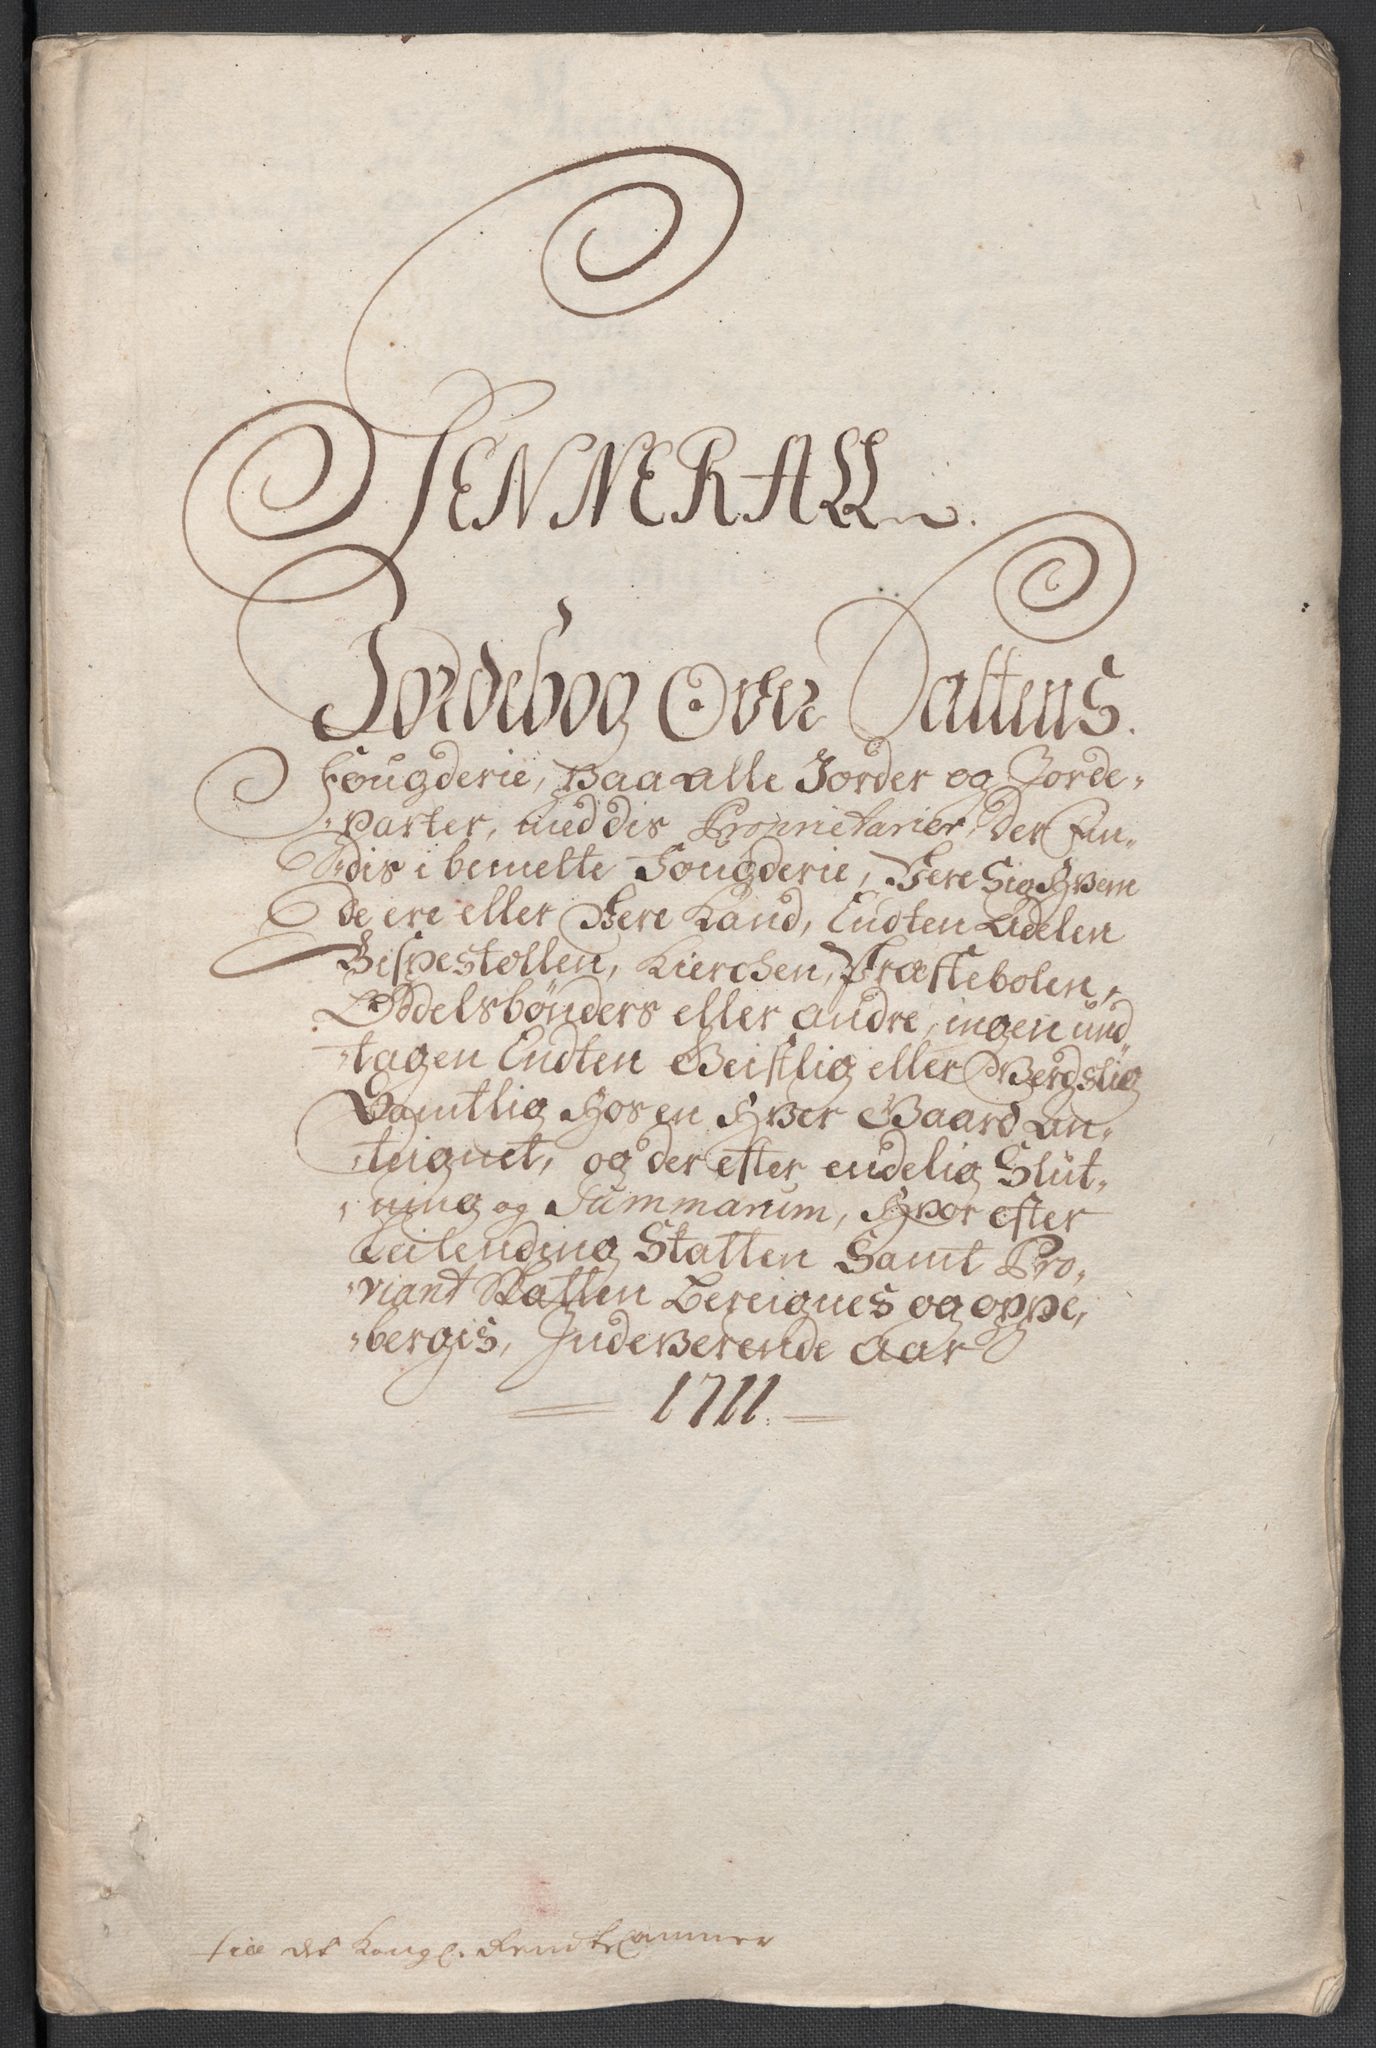 GENNERALL
Jordebog Over Saltens.
Fougderie, paa alle Jorder og Jorde-
parter, med dis Proprietarier, der Fin-
dis i bemelte Fougderie, Were Sig Hvem
de ere eller Were Kand, Endten Adelen
Bispestollen, Kierchen, Præstebolen,
Oddelsbønders eller andre, ingen und-
tagen Endten Geistlig eller Werdslig
Samtlig Hos en Hver Gaard An-
teignet, og der efter endelig Slut-
ning og Summarum, Hvor efter
Leilending Skatten Samt Pro-
viant Skatten Bereignes og oppe,
bergis, Indeværende Aar
1711.
till det Kongl. RendteCammer